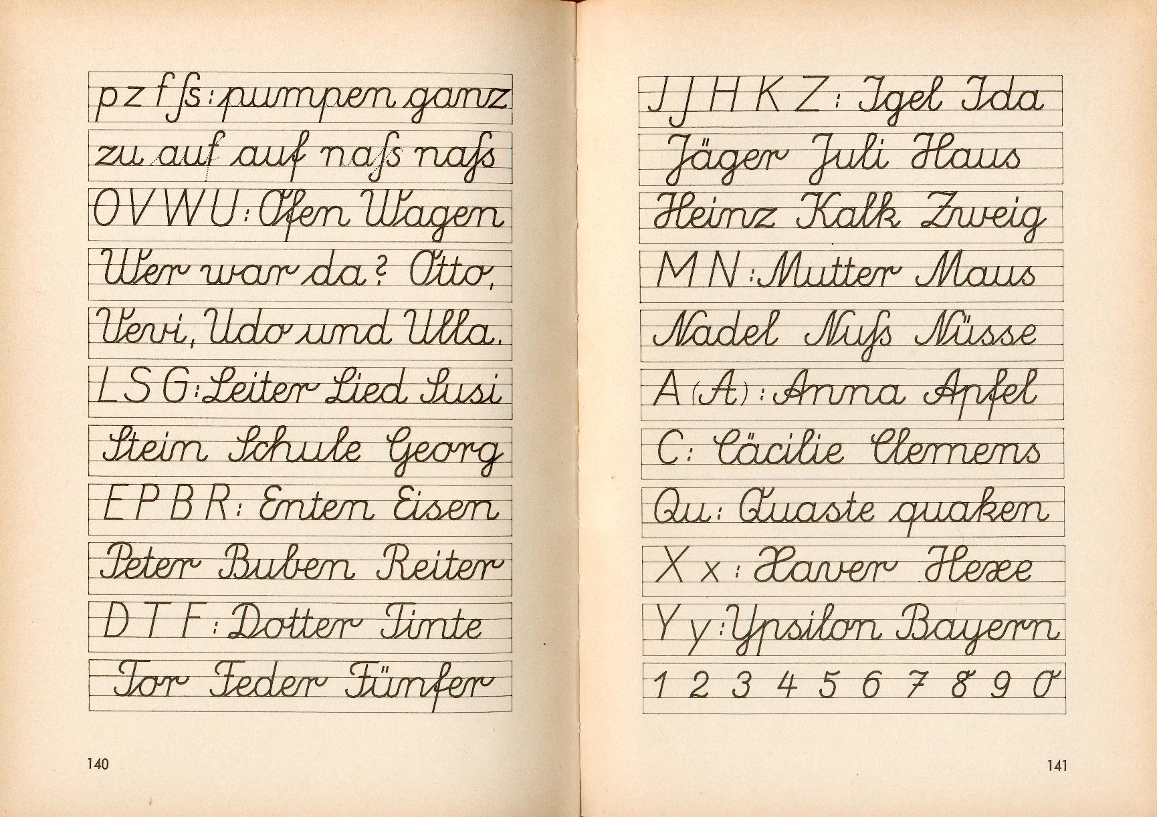 p z f ſs: pumpen ganz
zu auf auf naſs naſs
O V W U: Ofen Wagen
Wer war da? Otto,
Vevi, Udo und Ulla.
L S G: Leiter Lied Susi
Stein Schule Georg
E P B R: Enten Eisen
Peter Buben Reiter
D T F: Dotter Tinte
Tor Feder Fünfer
140
I J H K Z: Igel Ida
Jäger Juli Haus
Heinz Kalk Zweig
M N: Mutter Maus
Nadel Nuſs Nüsse
A (A): Anna Apfel
C: Cäcilie Clemens
Qu: Quaste quaken
X x: Xaver Hexe
Y y: Ypsilon Bayern
1 2 3 4 5 6 7 8 9 0
141